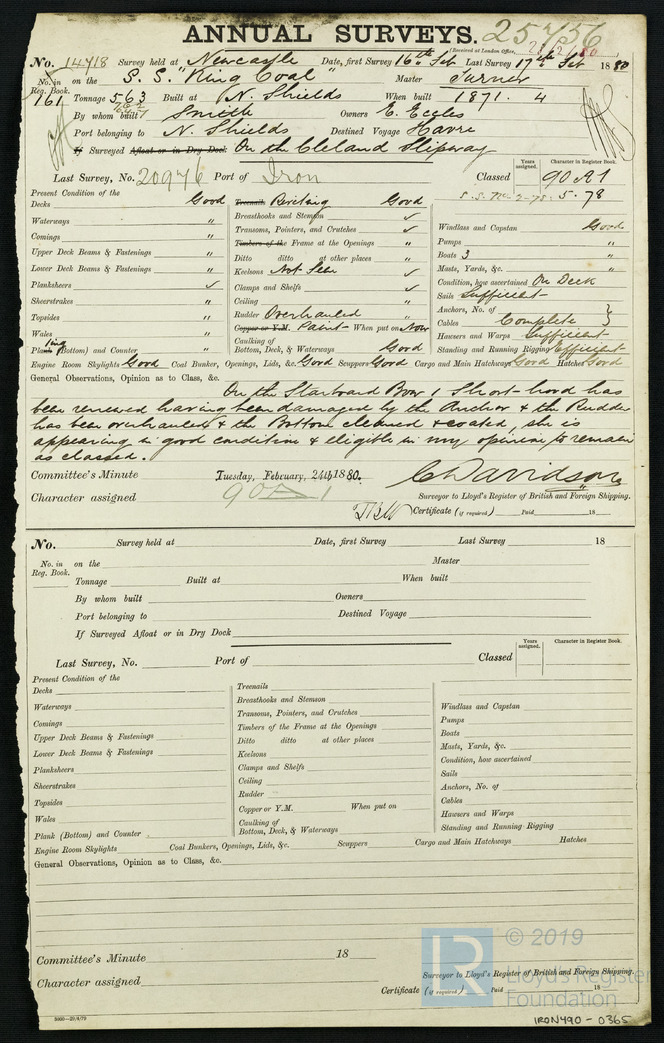 ANNUAL SURVEYS. 25756
(Received at London Office,
No. 14718 Survey held at Newcastle Date, first Survey 16th Feb Last Survey 17th Feb 1880
No. in Reg. Book. 161 on the S. S. "King Coal" Master Turner
Tonnage 563 Built at N. Shields When built 1871. 4
By whom built Smith Owners E. Eccles
Port belonging to N. Shields Destined Voyage Havre
If Surveyed Afloat or in Dry Dock On the Cleland Slipway
Last Survey, No. 20976 Port of Iron Classed Years assigned. Character in Register Book. 90 A1
5.78
Present Condition of the
Decks Good
Waterways "
Comings "
Upper Deck Beams & Fastenings "
Lower Deck Beams & Fastenings "
Planksheers ✓
Sheerstrakes "
Topsides "
Wales "
Plating (Bottom) and Counter "
Treenails Riveting Good
Breasthooks and Stemson ✓
Transoms, Pointers, and Crutches ✓
Timbers of the Frame at the Openings "
Ditto ditto at other places "
Keelsons Not Seen ✓
Clamps and Shelfs ✓
Ceiling "
Rudder Overhauled "
Copper or Y.M. Paint When put on Now
Caulking of Bottom, Deck, & Waterways Good
Windlass and Capstan Good
Pumps "
Boats 3 "
Masts, Yards, &c. "
Condition, how ascertained On Deck
Sails Sufficient
Anchors, No. of }
Cables Complete }
Hawsers and Warps Sufficient
Standing and Running Rigging Efficient
Engine Room Skylights Good Coal Bunker, Openings, Lids, &c. Good Scuppers Good Cargo and Main Hatchways Good Hatches Good
General Observations, Opinion as to Class, &c.
On the Starboard Bow 1 Short-hood has
been renewed having been damaged by the Anchor & the Rudder
has been overhauled & the Bottom cleaned & coated, she is
appearing in good condition & eligible in my opinion to remain
as classed.
Committee's Minute Tuesday, February, 24th 1880.
C Davidson
Character assigned 90A1
Surveyor to Lloyd's Register of British and Foreign Shipping.
Certificate (if required) Paid 18
No. Survey held at Date, first Survey Last Survey 18
No. in Reg. Book. on the Master
Tonnage Built at When built
By whom built Owners
Port belonging to Destined Voyage
If Surveyed Afloat or in Dry Dock
Last Survey, No. Port of Classed Years assigned. Character in Register Book.
Present Condition of the
Decks
Waterways
Comings
Upper Deck Beams & Fastenings
Lower Deck Beams & Fastenings
Planksheers
Sheerstrakes
Topsides
Wales
Plank (Bottom) and Counter
Treenails
Breasthooks and Stemson
Transoms, Pointers, and Crutches
Timbers of the Frame at the Openings
Ditto ditto at other places
Keelsons
Clamps and Shelfs
Ceiling
Rudder
Copper or Y.M. When put on
Caulking of Bottom, Deck, & Waterways
Windlass and Capstan
Pumps
Boats
Masts, Yards, &c.
Condition, how ascertained
Sails
Anchors, No. of
Cables
Hawsers and Warps
Standing and Running Rigging
Engine Room Skylights Coal Bunkers, Openings, Lids, &c. Scuppers Cargo and Main Hatchways Hatches
General Observations, Opinion as to Class, &c.
Committee's Minute 18
Character assigned
Surveyor to Lloyd's Register of British and Foreign Shipping.
Certificate (if required) Paid 18
LR © 2019
Lloyd's Register
Foundation
IRON490-0365